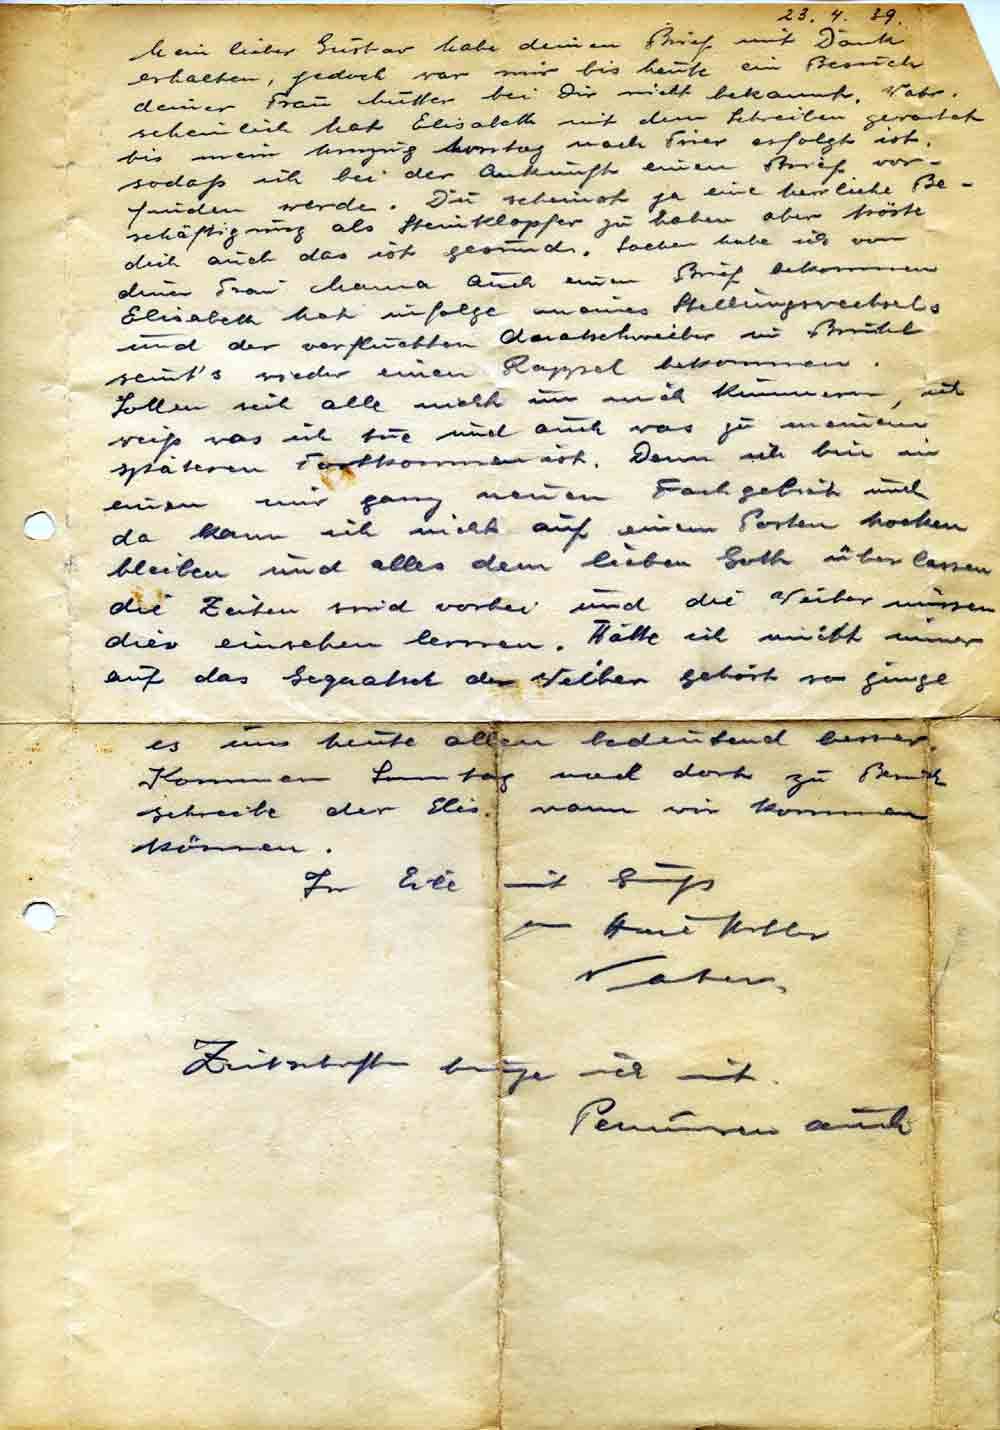 23. 4. 39.
Mein lieber Gustav habe deinen Brief mit Dank
erhalten, jedoch war mir bis heute ein Besuch
deiner Frau Mutter bei Dir nicht bekannt. Wahr-
scheinlich hat Elisabeth mit dem Schreiben gewartet
bis mein Umzug Montag nach Trier erfolgt ist.
sodaß ich bei der Ankunft einen Brief vor-
finden werde. Du scheinst ja eine herrliche Be-
schäftigung als Steinklopfer zu haben aber tröste
dich auch das ist gesund. Soeben habe ich von
deiner Frau Mama auch einen Brief bekommen
Elisabeth hat infolge meines Stellungswechsels
und der verfluchten in Brühl
wieder einen Rappel bekommen.
Sollen sich alle nicht um mich kümmern, ich
weiß was ich tue und auch was zu meinem
späteren Fortkommen ist. Denn ich bin in
einen mir ganz neuen Fachgebiet und
da kann ich nicht auf einem Posten hocken
bleiben und alles dem lieben Gott überlassen
die Zeiten sind vorbei und die Weiber müssen
dies einsehen lernen. Hätte ich nicht immer
auf das der Weiber gehört so ginge
es uns heute allen bedeutend besser.
Kommen Sonntag nach dort zu Besuch
schreibe der Elis. wann wir kommen
können.
In Eile mit Gruß
Vater.
Zeitschriften bringe ich mit.
auch